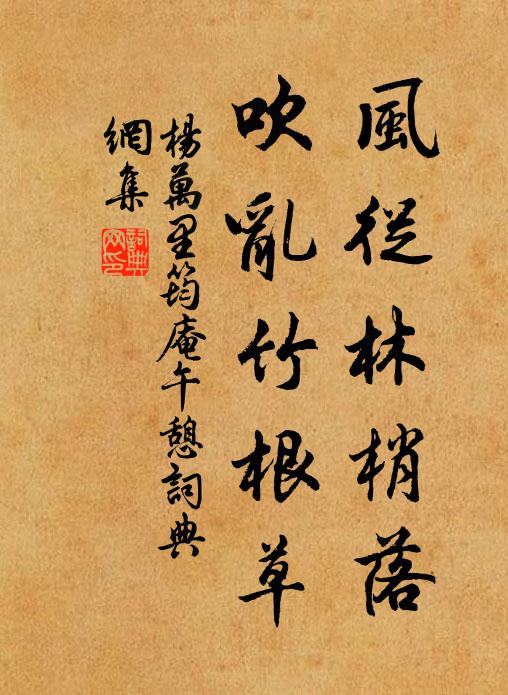 風從林梢落
吹亂竹根草
楊萬里筠庵午憩詞典
網集
詞典
网印